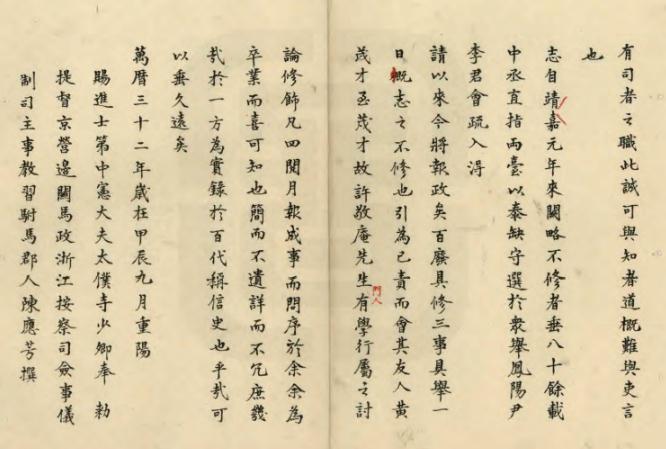 有司者之職此誠可與知者道概難與吏言
也
志自靖嘉元年來闕略不修者垂八十餘載
中丞直指兩臺以泰缺守選於衆舉鳳陽尹
李君會疏入淂
請以來今將報政矣百廢具修三事具舉一
日概志之不修也引為己責而會其友人黄
茂才至茂才故許敬庵先生門人有學行屬之討
論修飾凡四閱月報成事而問序於余余為
卒業而喜可知也簡而不遺詳而不冗庶幾
哉於一方為實錄於百代稱信史也乎哉可
以垂久遠矣
萬曆三十二年歲在甲辰九月重陽
賜進士第中憲大夫太僕寺少卿奉 勅
提督京營邊關馬政浙江按察司僉事儀
制司主事教習駙馬郡人陳應芳撰